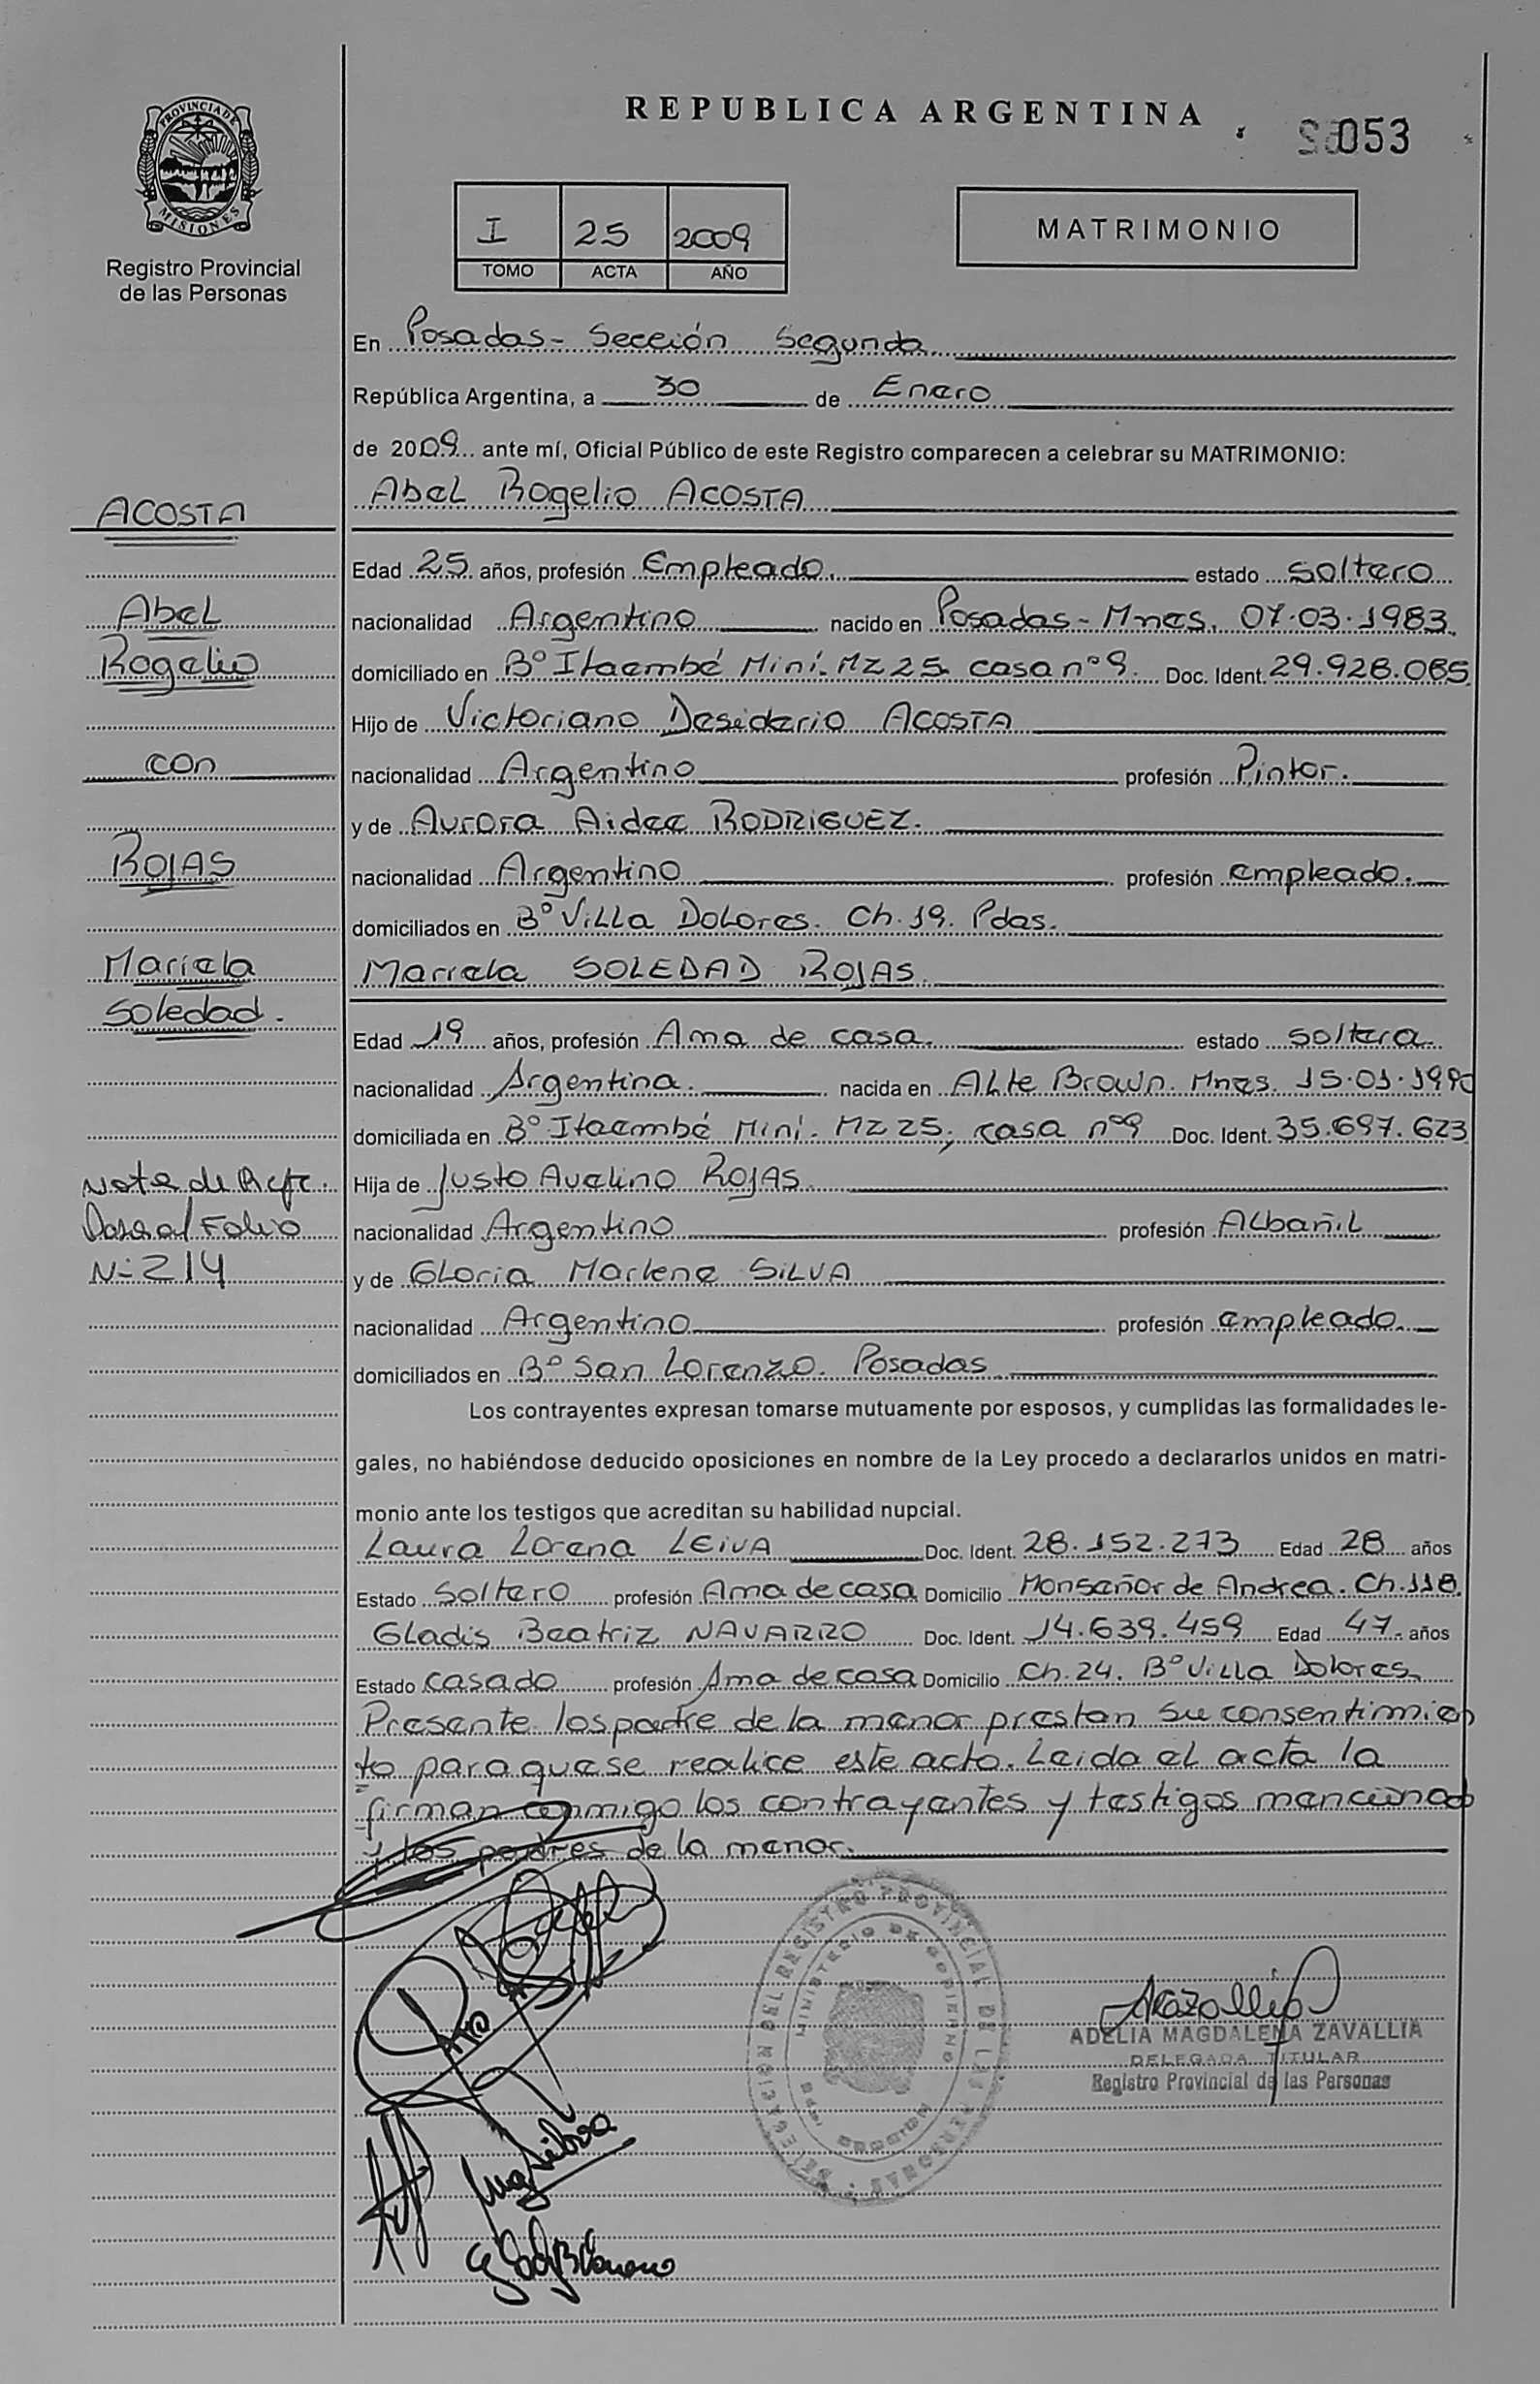 REPUBLICA ARGENTINA
053
PROVINCIA DE
MISIONES
Registro Provincial
de las Personas
I 25 2009
TOMO ACTA AÑO
MATRIMONIO
En Posadas - Sección Segunda
República Argentina, a 30 de Enero
de 2009 ante mí, Oficial Público de este Registro comparecen a celebrar su MATRIMONIO:
Abel Rogelio ACOSTA
ACOSTA
Edad 25 años, profesión Empleado. estado soltero
Abel
nacionalidad Argentino nacido en Posadas - Mnes. 07.03.1983.
Rogelio
domiciliado en B° Itaembé Miní. Mz 25. casa n° 9. Doc. Ident. 29.928.085
Hijo de Victoriano Desiderio ACOSTA
con
nacionalidad Argentino profesión Pintor.
y de Aurora Aidee RODRIGUEZ.
ROJAS
nacionalidad Argentino profesión empleado.
domiciliados en B° Villa Dolores. Ch. 19. Pdas.
Mariela
Mariela SOLEDAD ROJAS
Soledad.
Edad 19 años, profesión Ama de casa. estado soltera.
nacionalidad Argentina. nacida en Alte Brown. Mnes. 15.01.1990
domiciliada en B° Itaembé Miní. Mz 25, casa n° 9 Doc. Ident. 35.697.623
Nota de Refe.
Hija de Justo Avelino ROJAS
al Folio
nacionalidad Argentino profesión Albañil
N- 214
y de Gloria Marlene SILVA
nacionalidad Argentino profesión empleado.
domiciliados en B° San Lorenzo. Posadas
Los contrayentes expresan tomarse mutuamente por esposos, y cumplidas las formalidades le-
gales, no habiéndose deducido oposiciones en nombre de la Ley procedo a declararlos unidos en matri-
monio ante los testigos que acreditan su habilidad nupcial.
Laura Lorena LEIVA Doc. Ident. 28.152.273 Edad 28 años
Estado Soltero profesión Ama de casa Domicilio Monseñor de Andrea. Ch. 118.
Gladis Beatriz NAVARRO Doc. Ident. 14.639.459 Edad 47 años
Estado casado profesión Ama de casa Domicilio Ch. 24. B° Villa Dolores
Presente los padre de la menor prestan su consentimien
to para que se realice este acto. Leida el acta la
firman conmigo los contrayentes y testigos mencionado
y los padres de la menor.
DELEGACION DEL REGISTRO PROVINCIAL DE LAS PERSONAS
MINISTERIO DE GOBIERNO
ADELIA MAGDALENA ZAVALLIA
DELEGADA TITULAR
Registro Provincial de las Personas